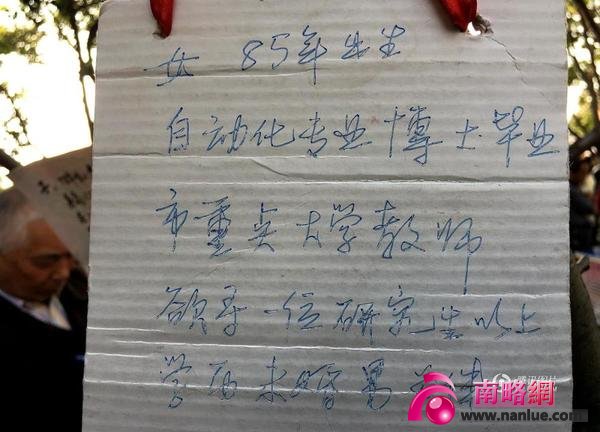 女 85年出生
自动化专业博士毕业
市重点大学教师
欲寻一位研究生以上
学历未婚男为伴
南略網
www.nanlue.com